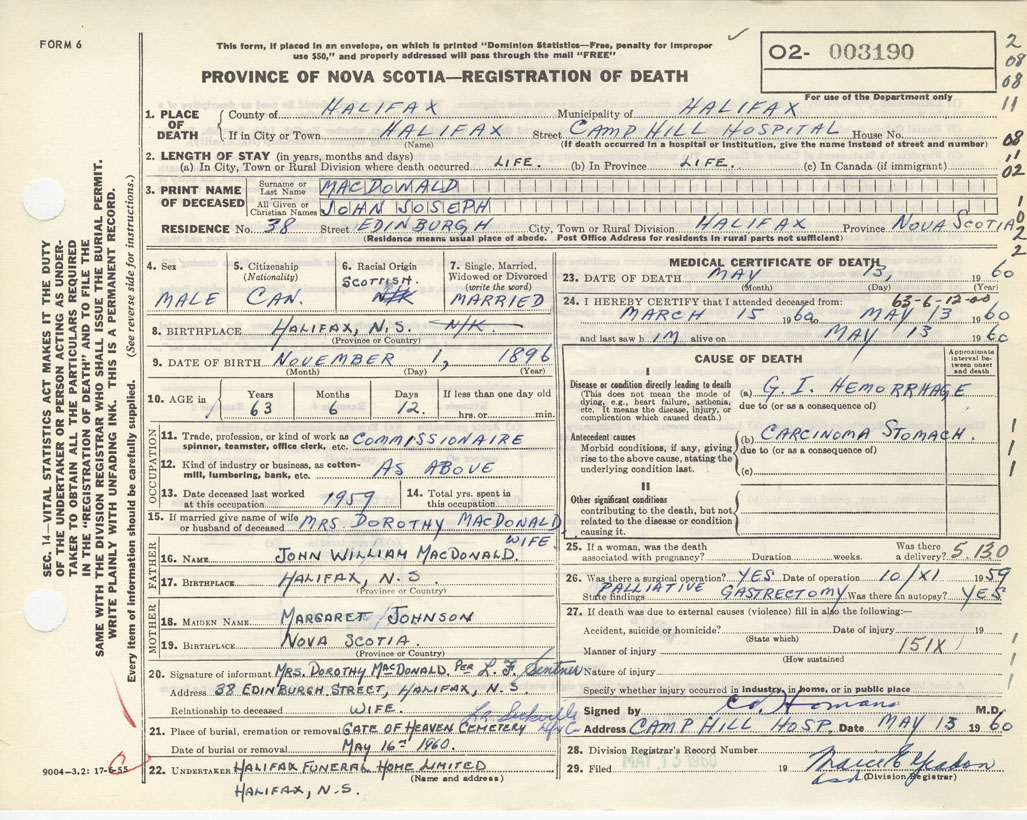 FORM 6
This form, if placed in an envelope, on which is printed "Dominion Statistics—Free, penalty for improper
use $50," and properly addressed will pass through the mail "FREE"
PROVINCE OF NOVA SCOTIA—REGISTRATION OF DEATH
02- 003190
For use of the Department only
2
08
08
11
08
11
02
1. PLACE OF DEATH County of HALIFAX Municipality of HALIFAX
If in City or Town HALIFAX Street CAMP HILL HOSPITAL House No.
(Name) (If death occurred in a hospital or institution, give the name instead of street and number)
2. LENGTH OF STAY (in years, months and days)
(a) In City, Town or Rural Division where death occurred LIFE. (b) In Province LIFE. (c) In Canada (if immigrant)
3. PRINT NAME OF DECEASED Surname or Last Name MACDONALD
All Given or Christian Names JOHN JOSEPH
RESIDENCE No. 38 Street EDINBURGH City, Town or Rural Division HALIFAX Province NOVA SCOTIA
(Residence means usual place of abode. Post Office Address for residents in rural parts not sufficient)
SEC. 14—VITAL STATISTICS ACT MAKES IT THE DUTY
OF THE UNDERTAKER OR PERSON ACTING AS UNDER-
TAKER TO OBTAIN ALL THE PARTICULARS REQUIRED
IN THE "REGISTRATION OF DEATH" AND TO FILE THE
SAME WITH THE DIVISION REGISTRAR WHO SHALL ISSUE THE BURIAL PERMIT.
WRITE PLAINLY WITH UNFADING INK. THIS IS A PERMANENT RECORD.
Every item of information should be carefully supplied. (See reverse side for instructions.)
4. Sex
MALE
5. Citizenship
(Nationality)
CAN.
6. Racial Origin
SCOTTISH.
N/K
7. Single, Married,
Widowed or Divorced
(write the word)
MARRIED
8. BIRTHPLACE HALIFAX, N.S. N/K
(Province or Country)
9. DATE OF BIRTH NOVEMBER 1, 1896
(Month) (Day) (Year)
10. AGE in Years Months Days If less than one day old
63 6 12. hrs. or min.
OCCUPATION
11. Trade, profession, or kind of work as COMMISSIONAIRE
spinner, teamster, office clerk, etc.
12. Kind of industry or business, as cotton- AS ABOVE
mill, lumbering, bank, etc.
13. Date deceased last worked 1959
at this occupation
14. Total yrs. spent in
this occupation
15. If married give name of wife MRS DOROTHY MACDONALD
or husband of deceased WIFE
FATHER
16. NAME JOHN WILLIAM MACDONALD.
17. BIRTHPLACE HALIFAX, N.S
(Province or Country)
MOTHER
18. MAIDEN NAME MARGARET JOHNSON
19. BIRTHPLACE NOVA SCOTIA.
(Province or Country)
20. Signature of informant MRS. DOROTHY MACDONALD PER L. F.
Address 38 EDINBURGH STREET, HALIFAX, N.S.
Relationship to deceased WIFE.
21. Place of burial, cremation or removal GATE OF HEAVEN CEMETERY
Date of burial or removal MAY 16TH 1960.
22. UNDERTAKER HALIFAX FUNERAL HOME LIMITED
(Name and address)
HALIFAX, N.S.
9004—3.2: 17-6-55
MEDICAL CERTIFICATE OF DEATH
23. DATE OF DEATH MAY 13, 1960
(Month) (Day) (Year)
24. I HEREBY CERTIFY that I attended deceased from: 63-6-12-00
MARCH 15 1960 to MAY 13 1960
and last saw h IM alive on MAY 13 1960
CAUSE OF DEATH
Approximate
interval be-
tween onset
and death
I
Disease or condition directly leading to death
(This does not mean the mode of
dying, e.g., heart failure, asthenia,
etc. It means the disease, injury, or
complication which caused death.)
(a) G. I. HEMORRHAGE
due to (or as a consequence of)
Antecedent causes
Morbid conditions, if any, giving
rise to the above cause, stating the
underlying condition last.
(b) CARCINOMA STOMACH.
due to (or as a consequence of)
(c)
II
Other significant conditions
contributing to the death, but not
related to the disease or condition
causing it.
25. If a woman, was the death Was there
associated with pregnancy? Duration weeks. a delivery? 5.130
26. Was there a surgical operation? YES Date of operation 10/XI 1959
State findings PALLIATIVE GASTRECTOMY Was there an autopsy? YES
27. If death was due to external causes (violence) fill in also the following:—
Accident, suicide or homicide? Date of injury 19
(State which)
Manner of injury 151X
(How sustained
Nature of injury
Specify whether injury occurred in industry, in home, or in public place
Signed by M.D.
Address CAMP HILL HOSP. Date MAY 13 1960
28. Division Registrar's Record Number
29. Filed MAY 13 1960 19
(Division Registrar)